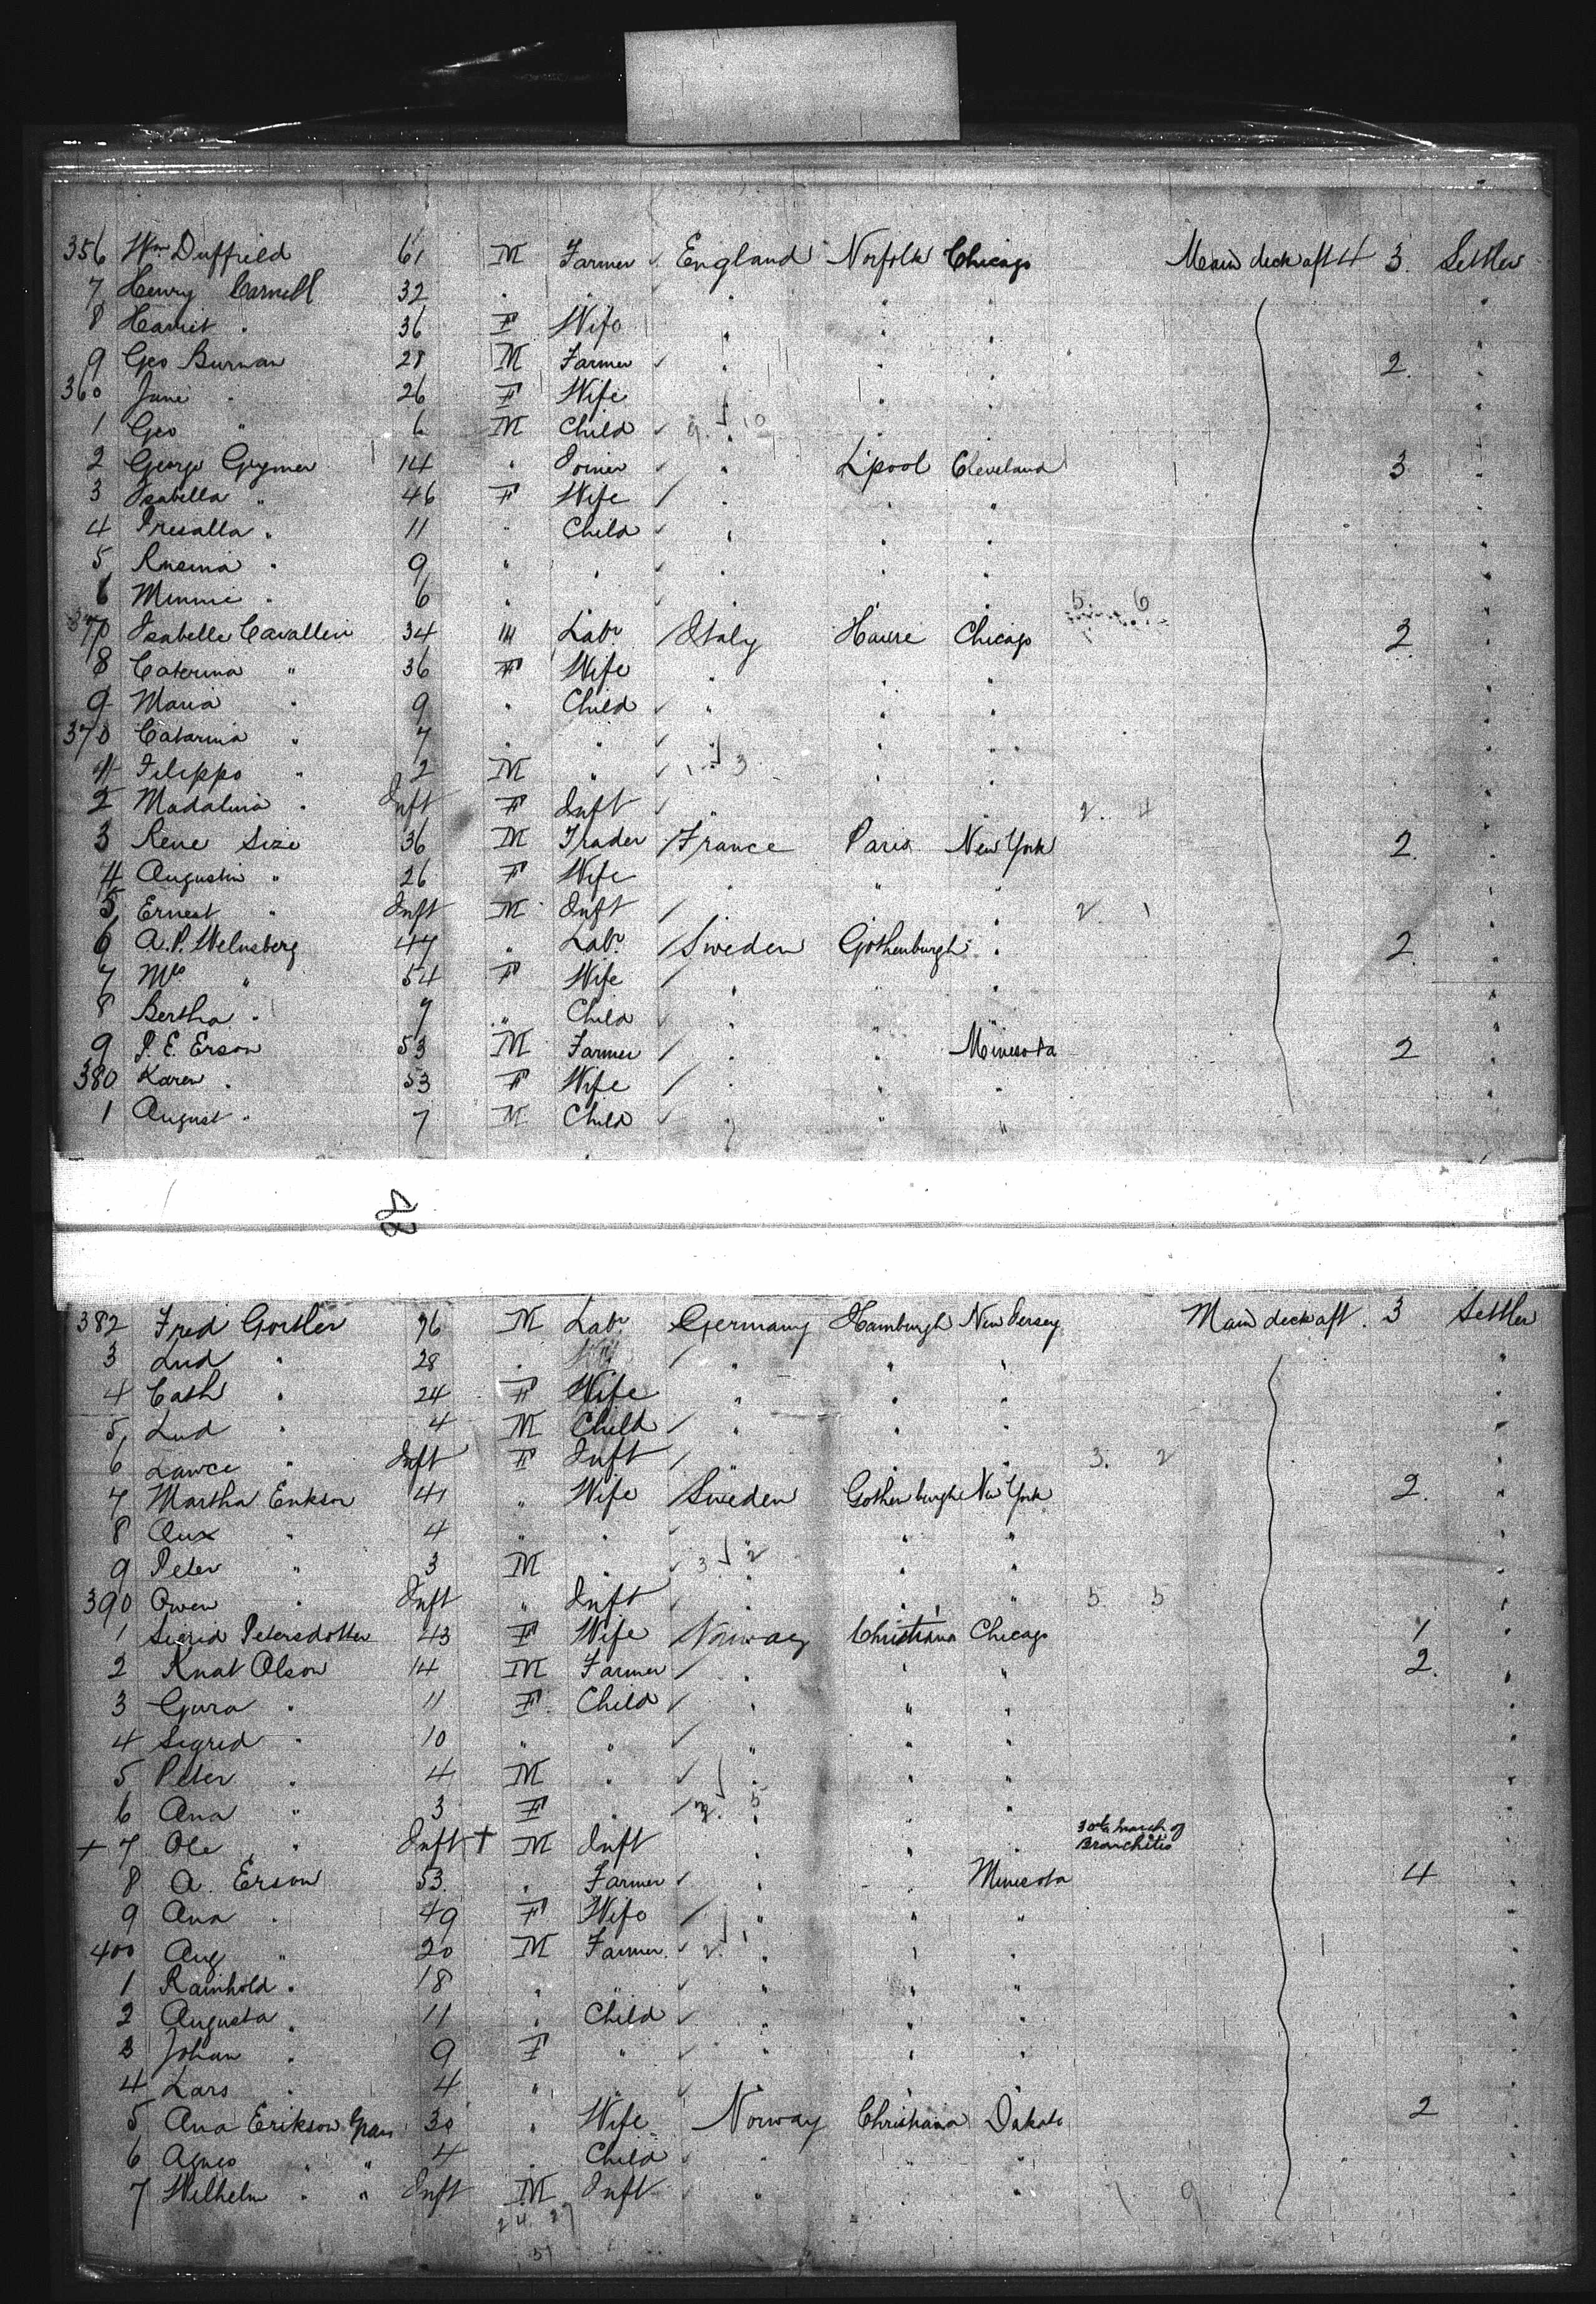 356 Wm Duffield 61 M Farmer England Norfolk Chicago Main deck aft 3. Settler
7 Henry Carnell 32 " " " " " "
8 Harriet " 36 F Wife " " " "
9 Geo Burman 28 M Farmer " " " 2. "
360 Jane " 26 F Wife " " " "
1 Geo " 6 M Child " " "
2 George Gegmer 44 " Joiner " L'pool Cleveland 3 "
3 Isabella " 46 F Wife " " " "
4 Presalla " 11 " Child " " " "
5 Rusina " 9 " " " " " "
6 Minnie " 6 " " " " 5 6
7 Isabelle Cavallen 34 M Labr Italy Havre Chicago 2 "
8 Caterina " 36 F Wife " " " "
9 Maria " 9 " Child " " " "
370 Catarina " 7 " " " " " "
1 Filippo " 2 M " 1 3 " " "
2 Madalina " Inft F Inft " " 2. 4 "
3 Rene Size 36 M Trader France Paris New York 2. "
4 Augustin " 26 F Wife " " " "
5 Ernest " Inft M Inft " 2. 1 "
6 A.P. Welnsberg 47 " Labr Sweden Gothenburgh " 2. "
7 Mrs " 54 F Wife " " "
8 Bertha " 7 " Child " " " "
9 P. E. Erson 53 M Farmer " " Minesota 2 "
380 Karen " 53 F Wife " " "
1 August " 7 M Child " " "
382 Fred Gortler 76 M Labr Germany Hamburgh New Jersey Main deck aft. 3 Settler
3 Lud " 28 " " " " "
4 Cath " 24 F Wife " " " "
5 Lud " 4 M Child " " " "
6 Lawce " Inft F Inft " " " 3. 2 "
7 Martha Erikson 41 " Wife Sweden Gothenburgh New York 2. "
8 Aux " 4 " " " " "
9 Peter " 3 M " 3 2 " " "
390 Owen " Inft " Inft " " " 5 5 "
1 Sigrid Petersdotter 43 F Wife Norway Christiana Chicago 1 "
2 Knat Olson 14 M Farmer " " " 2. "
3 Gura " 11 F Child " " " "
4 Sigrid " 10 " " " " " "
5 Peter " 4 M " " " " "
6 Ana " 3 F " 2. 5 " " "
+ 7 Ole " Inft + M Inft " " " 30th March of Bronchitis "
8 A. Erson 53 " Farmer " " Minesota 4 "
9 Ana " 49 F Wife " " " "
400 Aug " 20 M Farmer 2. 1 " " "
1 Rainhold " 18 " " " " " "
2 Augusta " 11 " Child " " " "
3 Johan " 9 F " " " " "
4 Lars " 4 " " " " " "
5 Ana Erikson 30 " Wife Norway Christiana Dakota 2 "
6 Agnes " " 4 " Child " " " "
7 Wilhelm " " Inft M Inft " " " 1 9 "
24 27
51